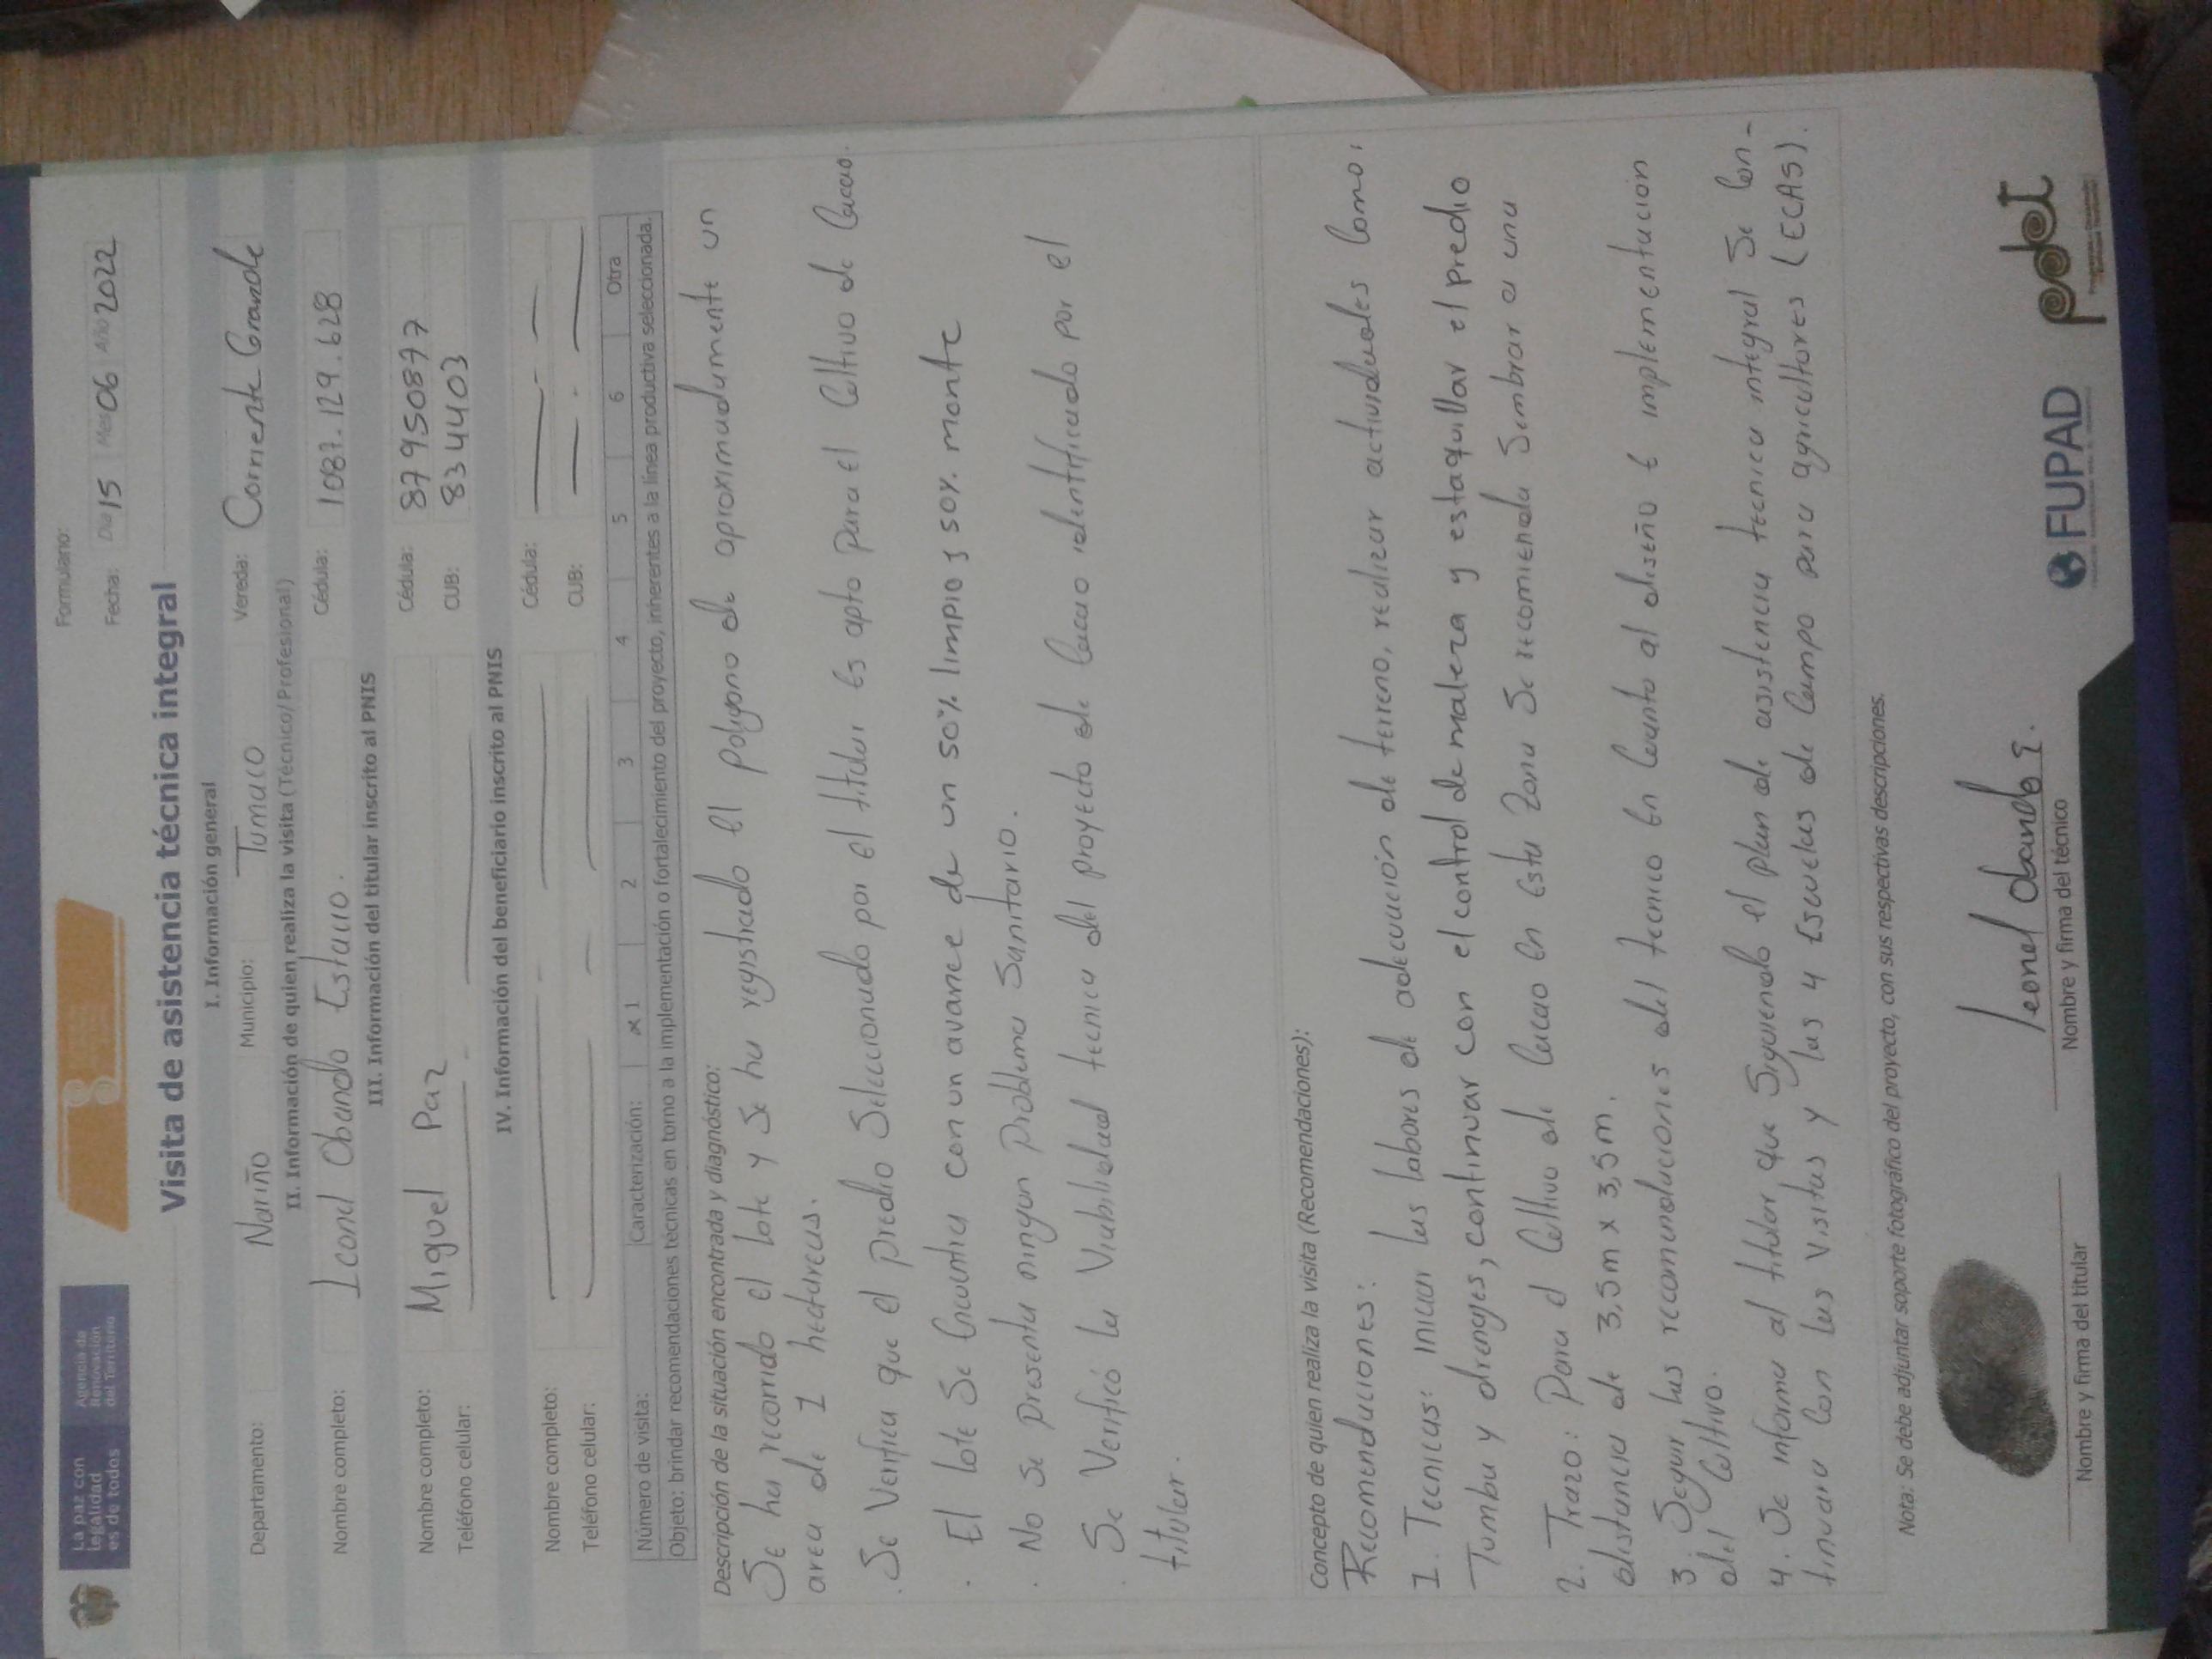 La paz con
legalidad
es de todos
Agencia de
Renovación
del Territorio
Formulario:
Fecha: Día 15 Mes 06 Año 2022
Visita de asistencia técnica integral
I. Información general
Departamento: Nariño Municipio: Tumaco Vereda: Corriente Grande
II. Información de quien realiza la visita (Técnico/Profesional)
Nombre completo: Leonel Obando Estacio. Cédula: 1087.129.628
III. Información del titular inscrito al PNIS
Nombre completo: Miguel Paz Cédula: 87950877
Teléfono celular: CUB: 834403
IV. Información del beneficiario inscrito al PNIS
Nombre completo: Cédula:
Teléfono celular: CUB:
Número de visita: Caracterización: x 1 2 3 4 5 6 Otra
Objeto: brindar recomendaciones técnicas en torno a la implementación o fortalecimiento del proyecto, inherentes a la línea productiva seleccionada.
Descripción de la situación encontrada y diagnóstico:
Se ha recorrido el lote y se ha registrado el poligono de aproximadamente un
area de 1 hectareas.
. Se Verifica que el predio Seleccionado por el titular es apto para el Cultivo de Cacao.
. El lote se encuentra con un avance de un 50% limpio y 50% monte
. No se presenta ningun problema Sanitario.
. Se Verificó la Viabilidad tecnica del proyecto de Cacao identificado por el
titular.
Concepto de quien realiza la visita (Recomendaciones):
Recomendaciones:
1. Tecnicas: iniciar las labores de adecuación de terreno, realizar actividades como:
Tumba y drenajes, continuar con el control de maleza y estaquillar el predio
2. Trazo: Para el Cultivo de Cacao en esta zona Se recomienda Sembrar a una
distancia de 3,5m x 3,5m.
3. Seguir las recomendaciones del tecnico en cuanto al diseño e implementación
del Cultivo.
4. Se informa al titular que Siguiendo el plan de asistencia tecnica integral Se Con-
tinuara con las visitas y las 4 Escuelas de Campo para agricultores (ECAS).
Nota: Se debe adjuntar soporte fotográfico del proyecto, con sus respectivas descripciones.
leonel obando E.
Nombre y firma del titular Nombre y firma del técnico
FUPAD
pdet